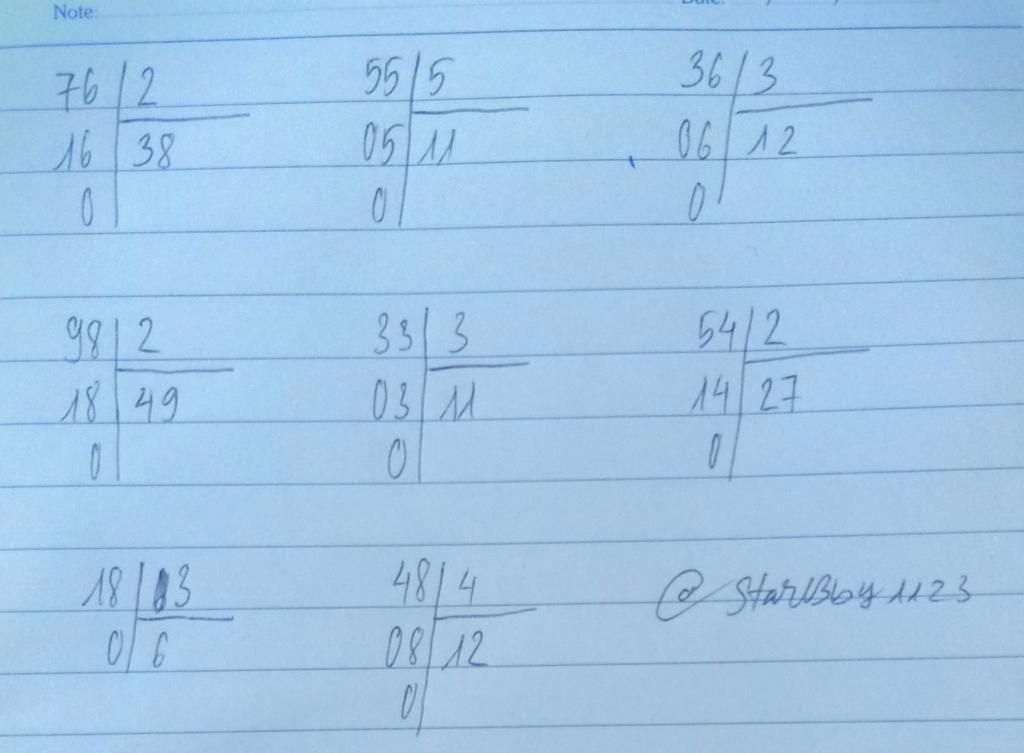 Note:
76 2 55 5 36 3
16 38 05 11 06 12
0 0 0
98 2 33 3 54 2
18 49 03 11 14 27
0 0 0
18 3 48 4
0 6 08 12
0